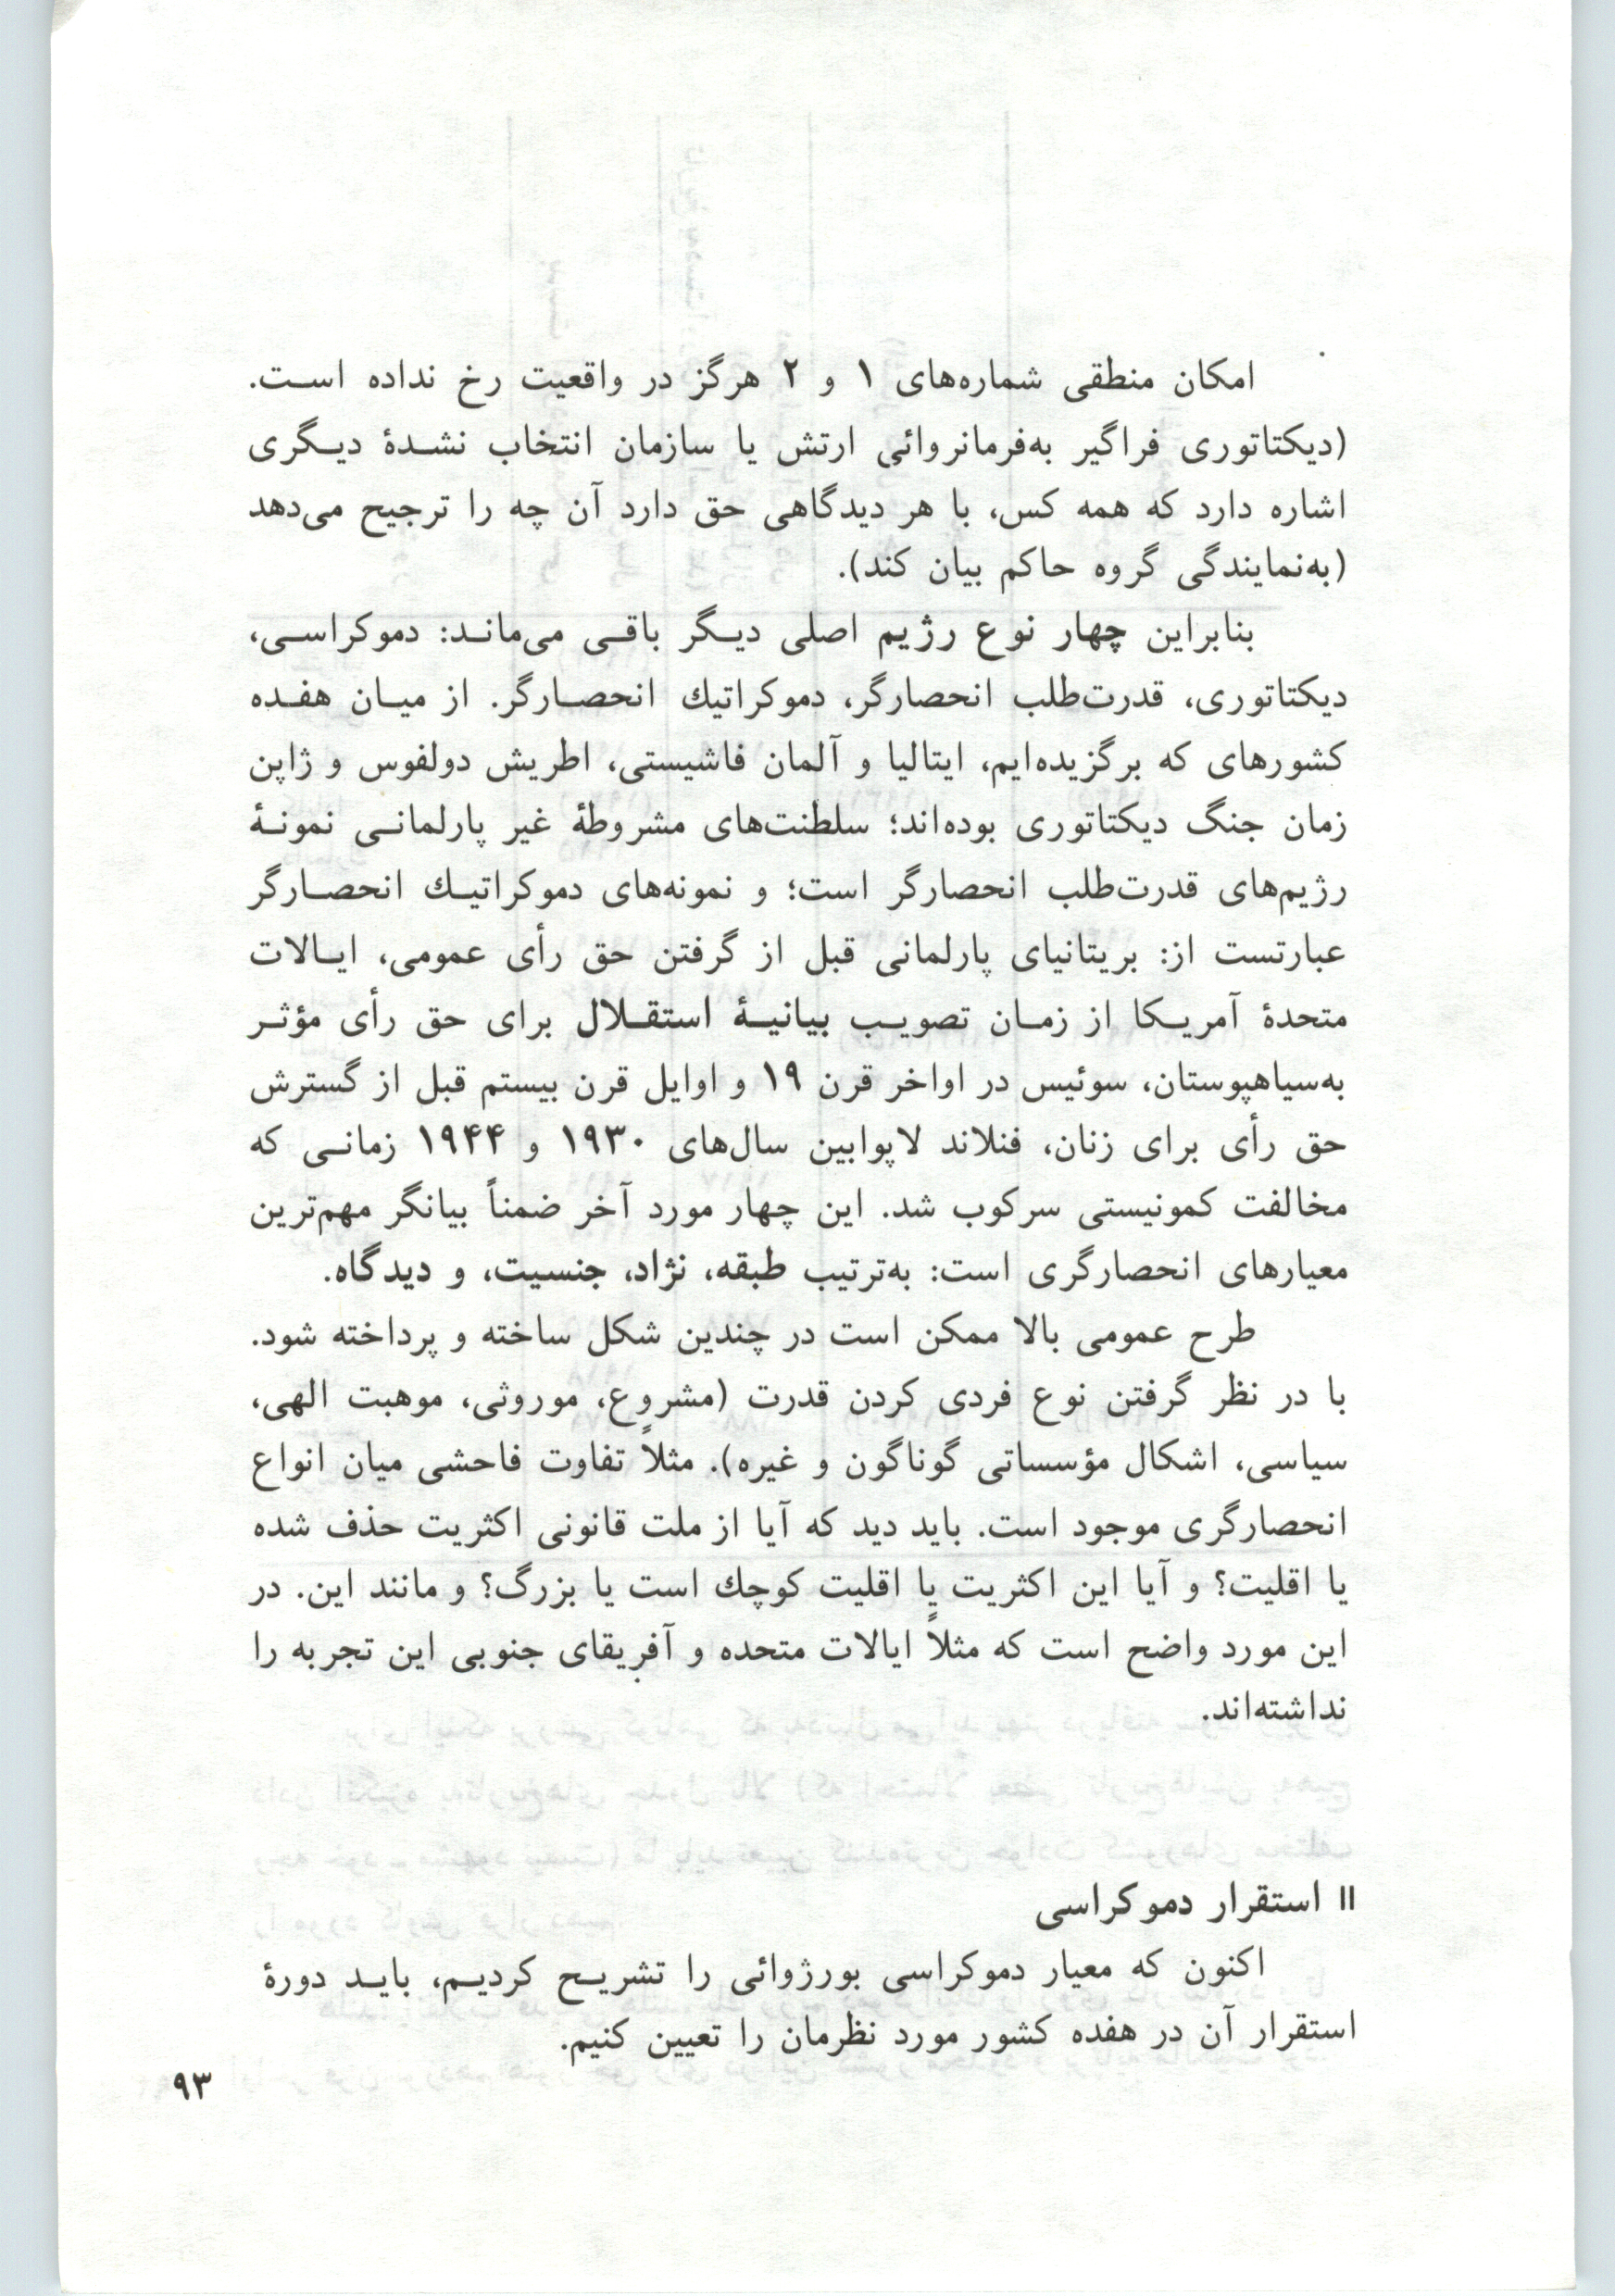 امکان منطقی شماره‌های ۱ و ۲ هرگز در واقعیت رخ نداده است.
(دیکتاتوری فراگیر به‌فرمانروائی ارتش یا سازمان انتخاب نشدهٔ دیگری
اشاره دارد که همه کس، با هر دیدگاهی حق دارد آن چه را ترجیح می‌دهد
(به‌نمایندگی گروه حاکم بیان کند).
بنابراین چهار نوع رژیم اصلی دیگر باقی می‌ماند: دموکراسی،
دیکتاتوری، قدرت‌طلب انحصارگر، دموکراتیك انحصارگر. از میان هفده
کشورهای که برگزیده‌ایم، ایتالیا و آلمان فاشیستی، اطریش دولفوس و ژاپن
زمان جنگ دیکتاتوری بوده‌اند؛ سلطنت‌های مشروطهٔ غیر پارلمانی نمونهٔ
رژیم‌های قدرت‌طلب انحصارگر است؛ و نمونه‌های دموکراتیك انحصارگر
عبارتست از: بریتانیای پارلمانی قبل از گرفتن حق رأی عمومی، ایالات
متحدهٔ آمریکا از زمان تصویب بیانیهٔ استقلال برای حق رأی مؤثر
به‌سیاهپوستان، سوئیس در اواخر قرن ۱۹ و اوایل قرن بیستم قبل از گسترش
حق رأی برای زنان، فنلاند لاپوابین سال‌های ۱۹۳۰ و ۱۹۴۴ زمانی که
مخالفت کمونیستی سرکوب شد. این چهار مورد آخر ضمناً بیانگر مهم‌ترین
معیارهای انحصارگری است: به‌ترتیب طبقه، نژاد، جنسیت، و دیدگاه.
طرح عمومی بالا ممکن است در چندین شکل ساخته و پرداخته شود.
با در نظر گرفتن نوع فردی کردن قدرت (مشروع، موروثی، موهبت الهی،
سیاسی، اشکال مؤسساتی گوناگون و غیره). مثلاً تفاوت فاحشی میان انواع
انحصارگری موجود است. باید دید که آیا از ملت قانونی اکثریت حذف شده
یا اقلیت؟ و آیا این اکثریت یا اقلیت کوچك است یا بزرگ؟ و مانند این. در
این مورد واضح است که مثلاً ایالات متحده و آفریقای جنوبی این تجربه را
نداشته‌اند.
II استقرار دموکراسی
اکنون که معیار دموکراسی بورژوائی را تشریح کردیم، باید دورهٔ
استقرار آن در هفده کشور مورد نظرمان را تعیین کنیم.
۹۳